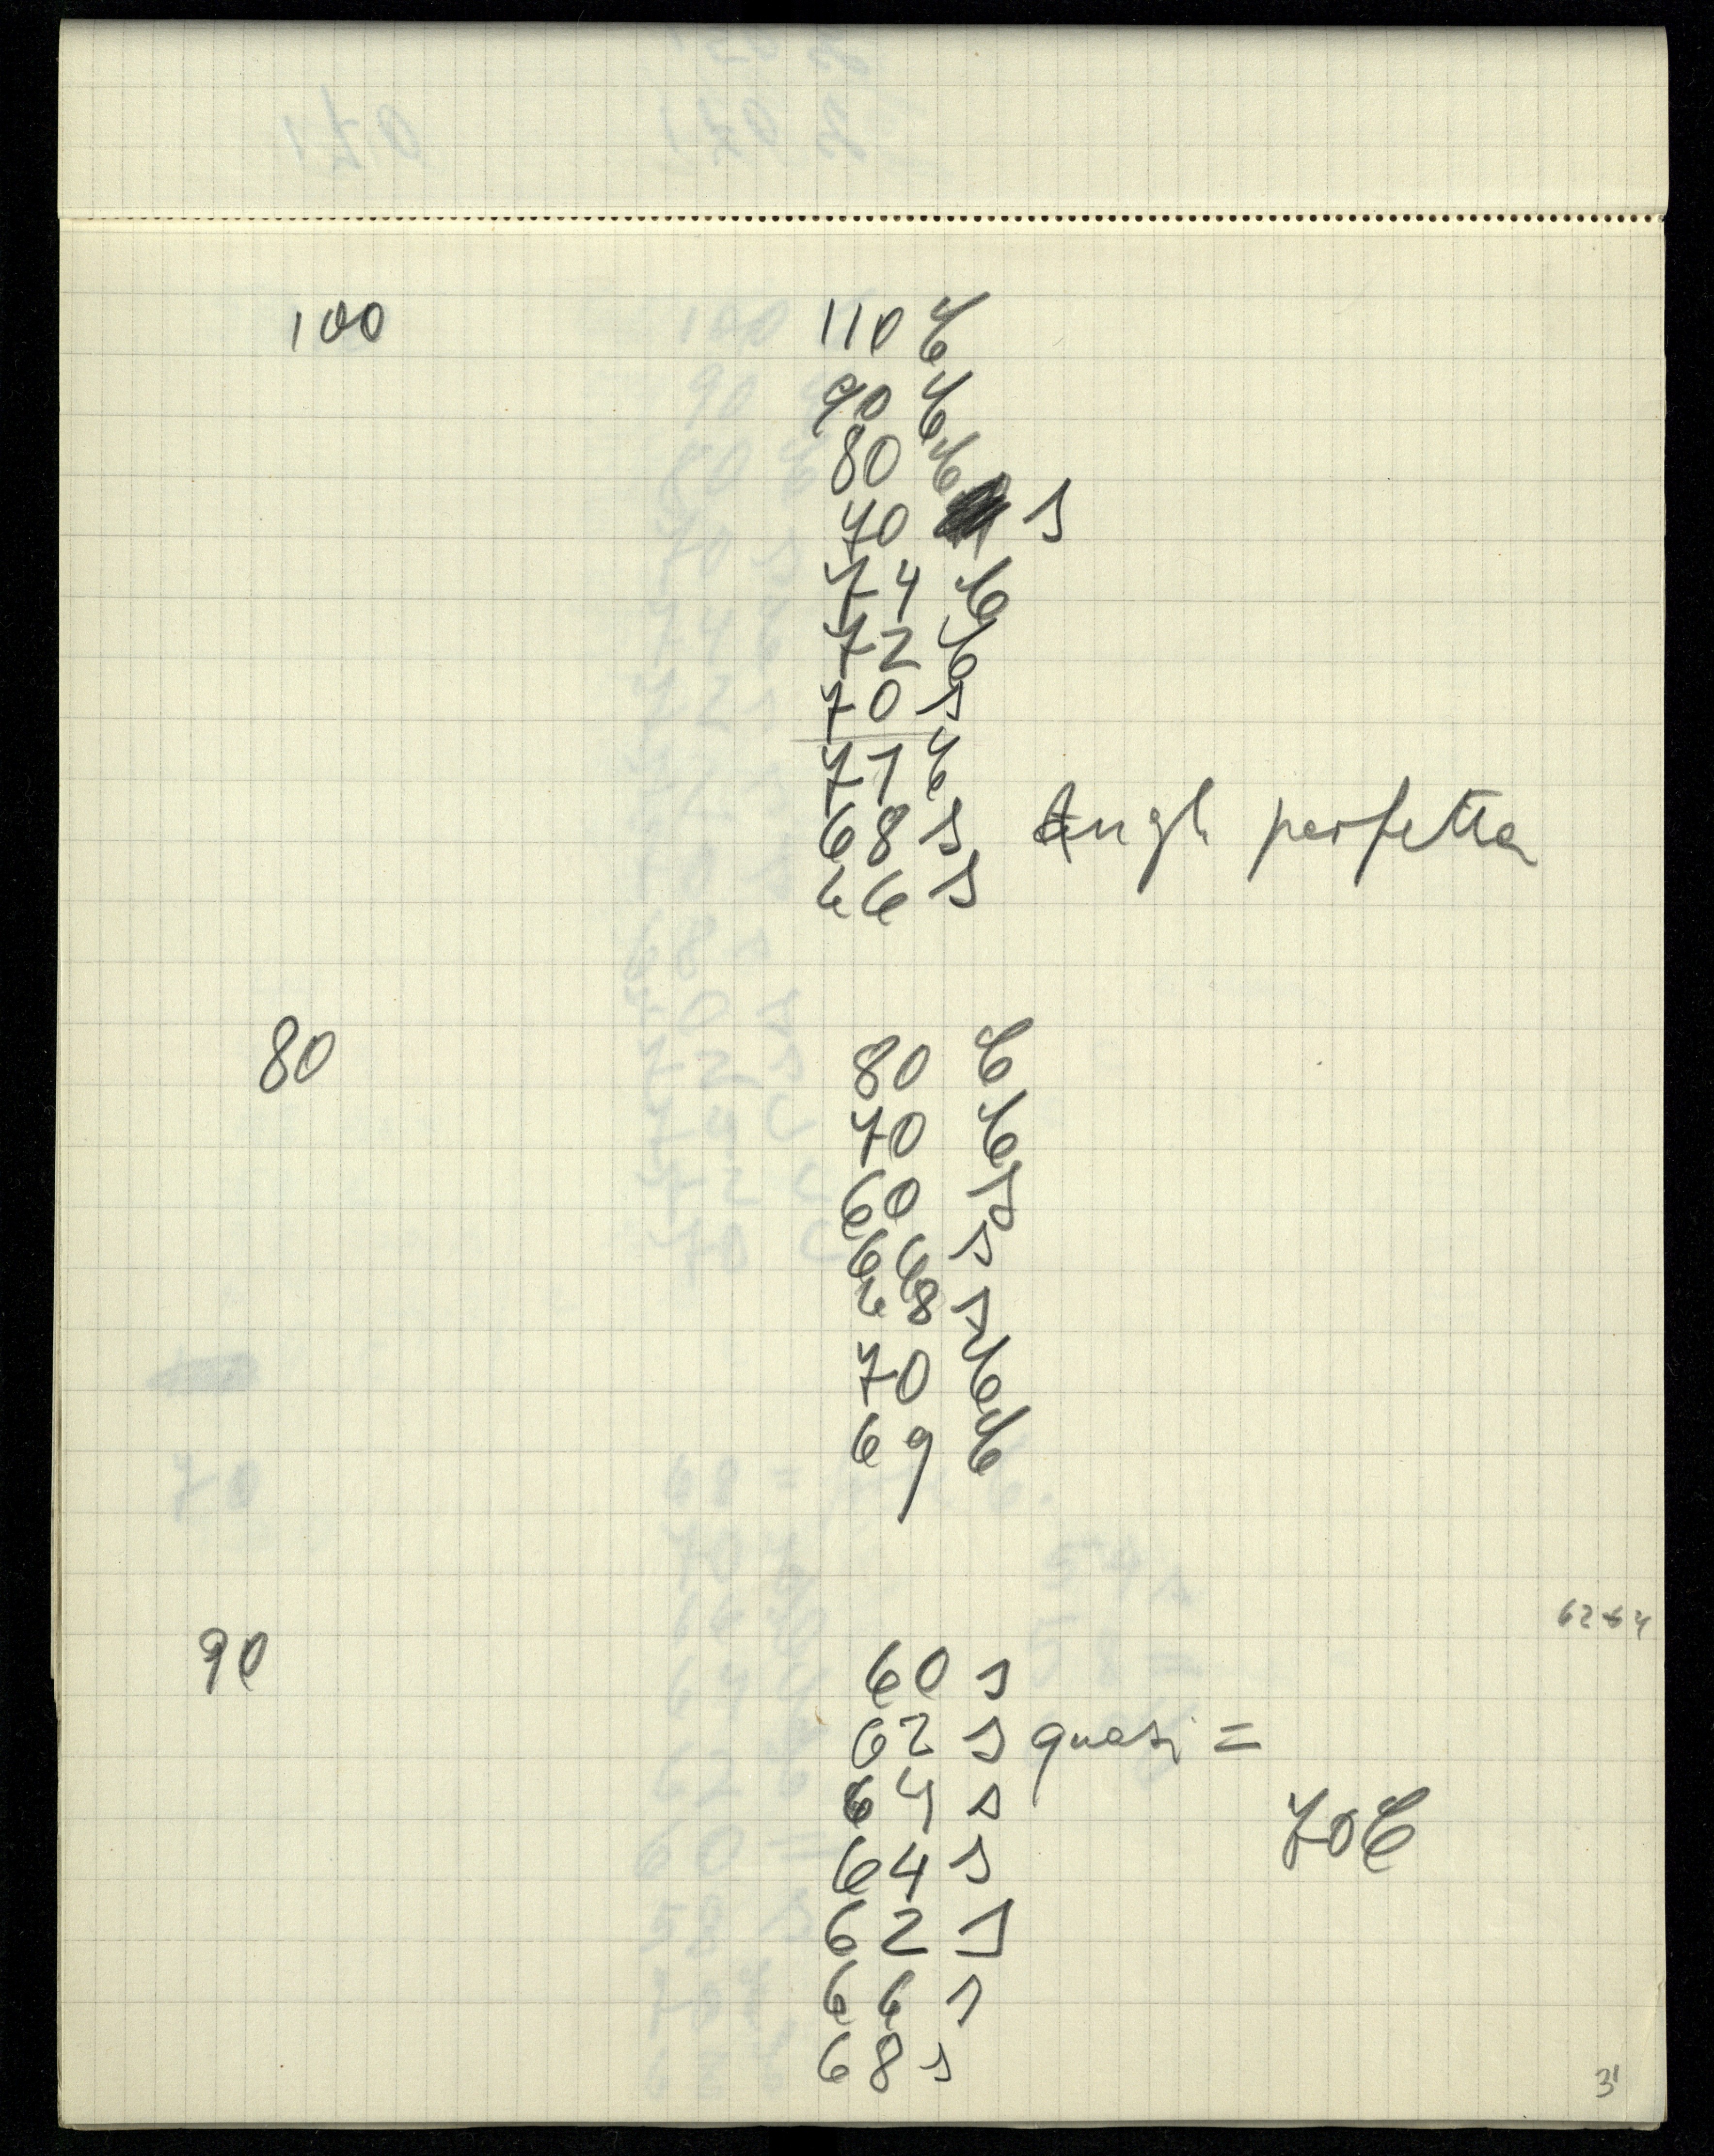 100 110 C
90 C
80 C
70 s
74 C
72 C
70 s
71 C
68 s perfetta
66 s
80 80 C
70 C
60 s
66 s
68 s
70 C
69 C
62 64
90 60 s
62 s quasi =
64 s
70 C
64 s
62 s
66 s
68 s
3'